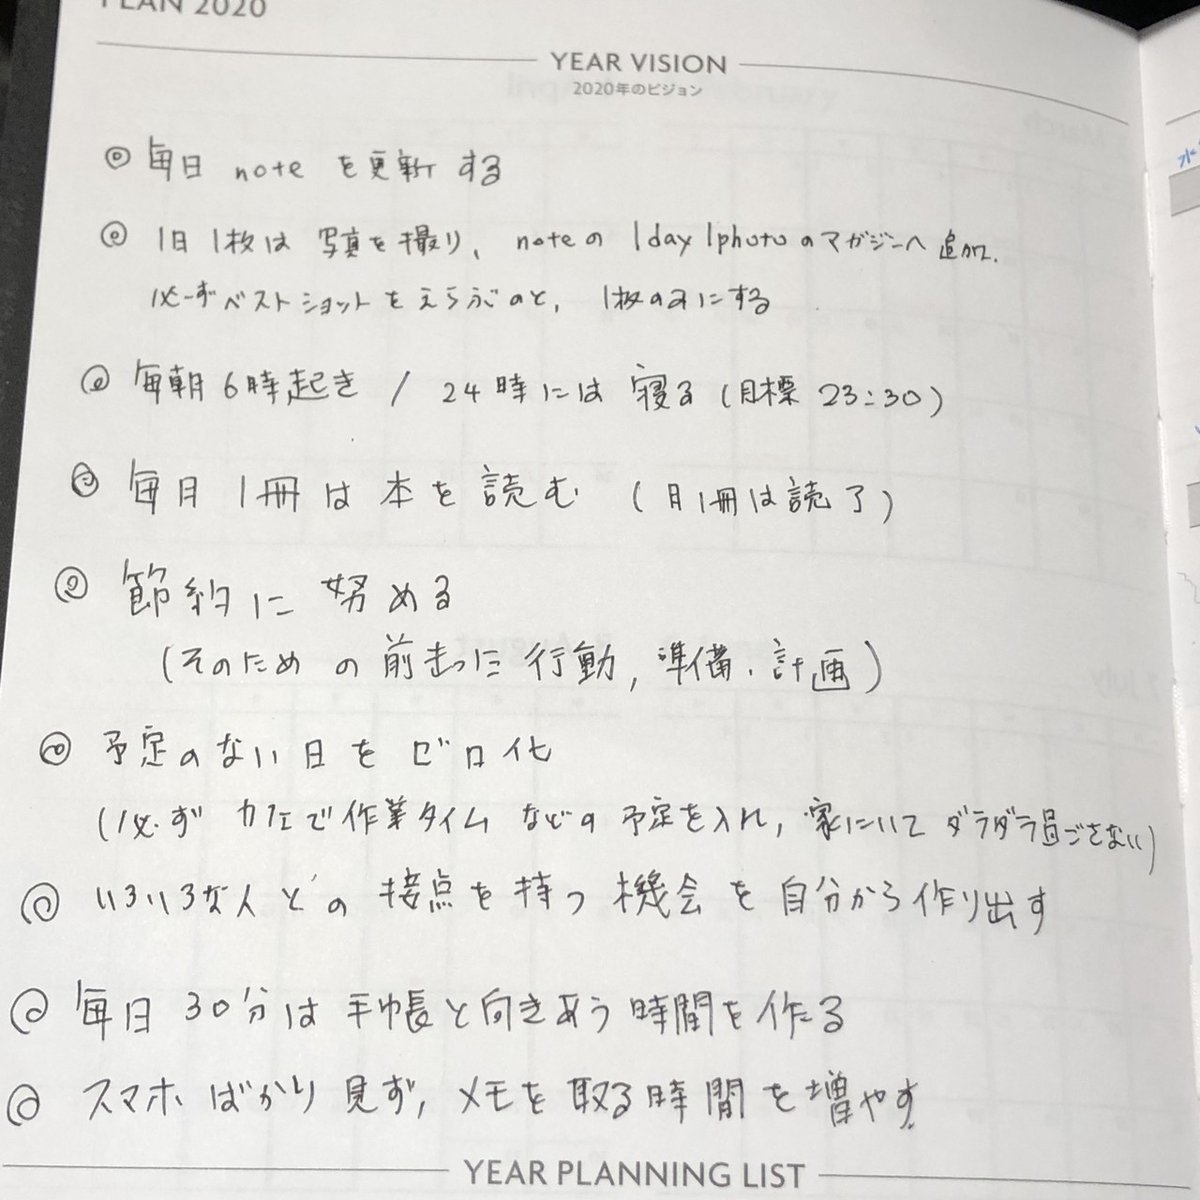 PLAN 2020
YEAR VISION
2020年のビジョン
◎ 毎日 note を更新する
◎ 1日1枚は 写真を撮り、noteの 1day 1photoのマガジンへ 追加。
必ずベストショットをえらぶのと、1枚のみにする
◎ 毎朝6時起き / 24時には 寝る (目標 23:30)
◎ 毎月 1冊は 本を 読む (月1冊は読了)
◎ 節約に 努める
(そのための 前もった 行動, 準備・計画)
◎ 予定のない日を ゼロ化
(必ず カフェで作業タイム などの 予定を入れ, 家にいて ダラダラ過ごさない)
◎ いろいろな人との 接点を 持つ 機会を 自分から作り出す
◎ 毎日 30分は 手帳と向きあう 時間を 作る
◎ スマホばかり 見ず, メモを 取る時間を増やす
YEAR PLANNING LIST